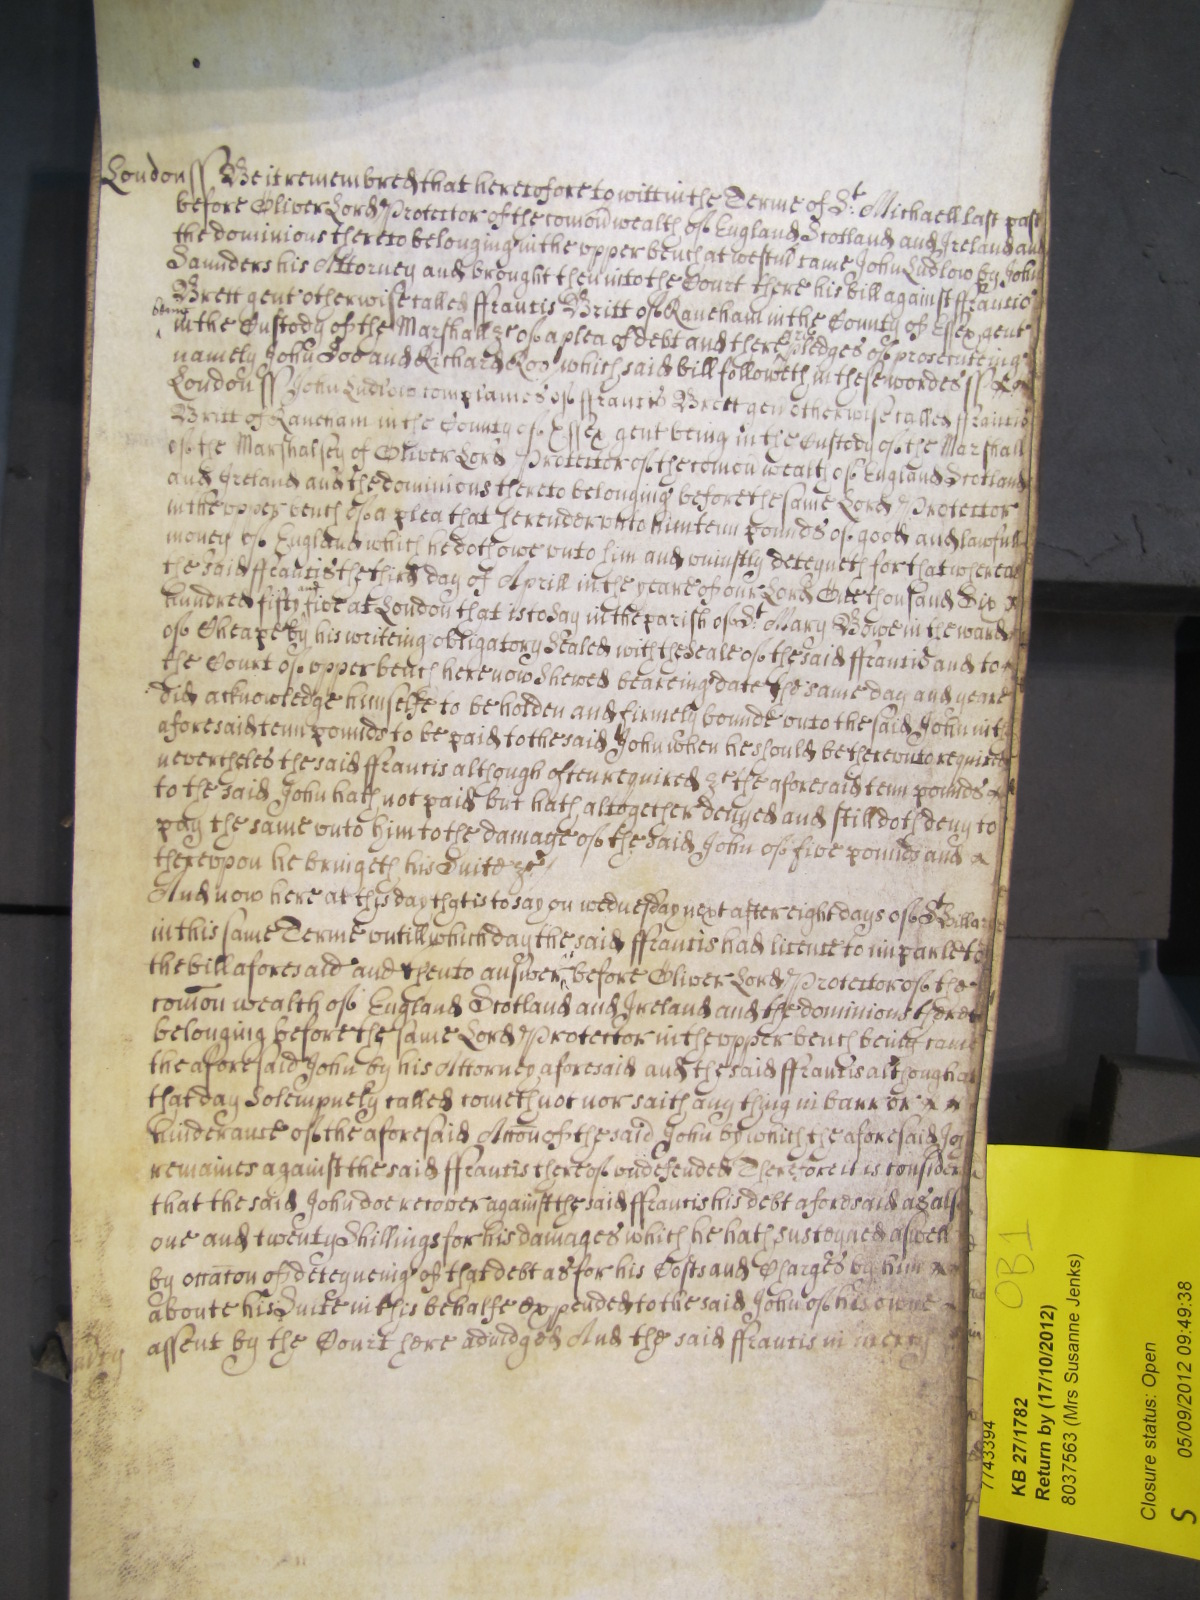 London ss Be it remembred that heretofore to witt in the Terme of St. Michaell last past
before Oliver Lord Protector of the comon wealth of England Scotland and Ireland and
the dominions thereto belonging in the upper bench at westm̃ came John Ludlow by John
Saunders his Attorney and brought then into the Court there his bill against ffrancis
Brett gent otherwise called ffrancis Britt of Raneham in the County of Essex gent
being
in the Custody of the Marshall &c of a plea of debt and there are pledges of prosecuteing
namely John Doo and Richard Roo which said bill followeth in these wordes ss
London ss John Ludlow complaines of ffrancis Brett gen otherwise called ffrancis
Britt of Raneham in the County of Essex gent being in the Custody of the Marshall
of the Marshalsey of Oliver Lord Protector of the comon wealth of England Scotland
and Ireland and the dominions thereto belonging before the same Lord Protector
in the upper bench of a plea that he render unto him tenn pounds of good and lawfull
money of England which he doth owe unto him and uniustly deteyneth for that whereas
the said ffrancis the third day of Aprill in the yeare of our Lord One thousand Six
hundred fifty and five at London that is to say in the parish of St. Mary Bowe in the ward
of Cheape by his writeing obligatory Sealed with the Seale of the said ffrancis and to
the Court of upper bench here now Shewed beareing date the same day and yeare
did acknowledge himselfe to be holden and firmely bound unto the said John in the
aforesaid tenn pounds to be paid to the said John when he should be thereunto required
nevertheles the said ffrancis although often required &c the aforesaid tenn pounds
to the said John hath not paid but hath altogether denyed and still doth deny to
pay the same unto him to the damage of the said John of five pounds and
thereuppon he bringeth his Suite &c
And now here at this day that is to say on wednesday next after eight days of St Hillary
in this same Terme untill which day the said ffrancis had licence to imparle to
the bill aforesaid and then to answer &c before Oliver Lord Protector of the
comon wealth of England Scotland and Ireland and the dominions thereto
belonging before the same Lord Protector in the upper bench came
the aforesaid John by his Attorney aforesaid and the said ffrancis although at
that day Solempnely called cometh not nor saith any thing in barr or
hinderance of the aforesaid Accon of the said John by which the aforesaid John
remaines against the said ffrancis thereof undefended Therefore it is considered
that the said John doe recover against the said ffrancis his debt aforesaid as also
one and twenty Shillings for his damages which he hath susteyned aswell
by occãcon of deteyneing of that debt as for his Costs and Charges by him
aboute his Suite in this behalfe expended to the said John of his owne
assent by the Court here adiudged And the said ffrancis in mercy
7743394
KB 27/1782
Return by (17/10/2012)
8037563 (Mrs Susanne Jenks)
OB1
Closure status: Open
S 05/09/2012 09:49:38